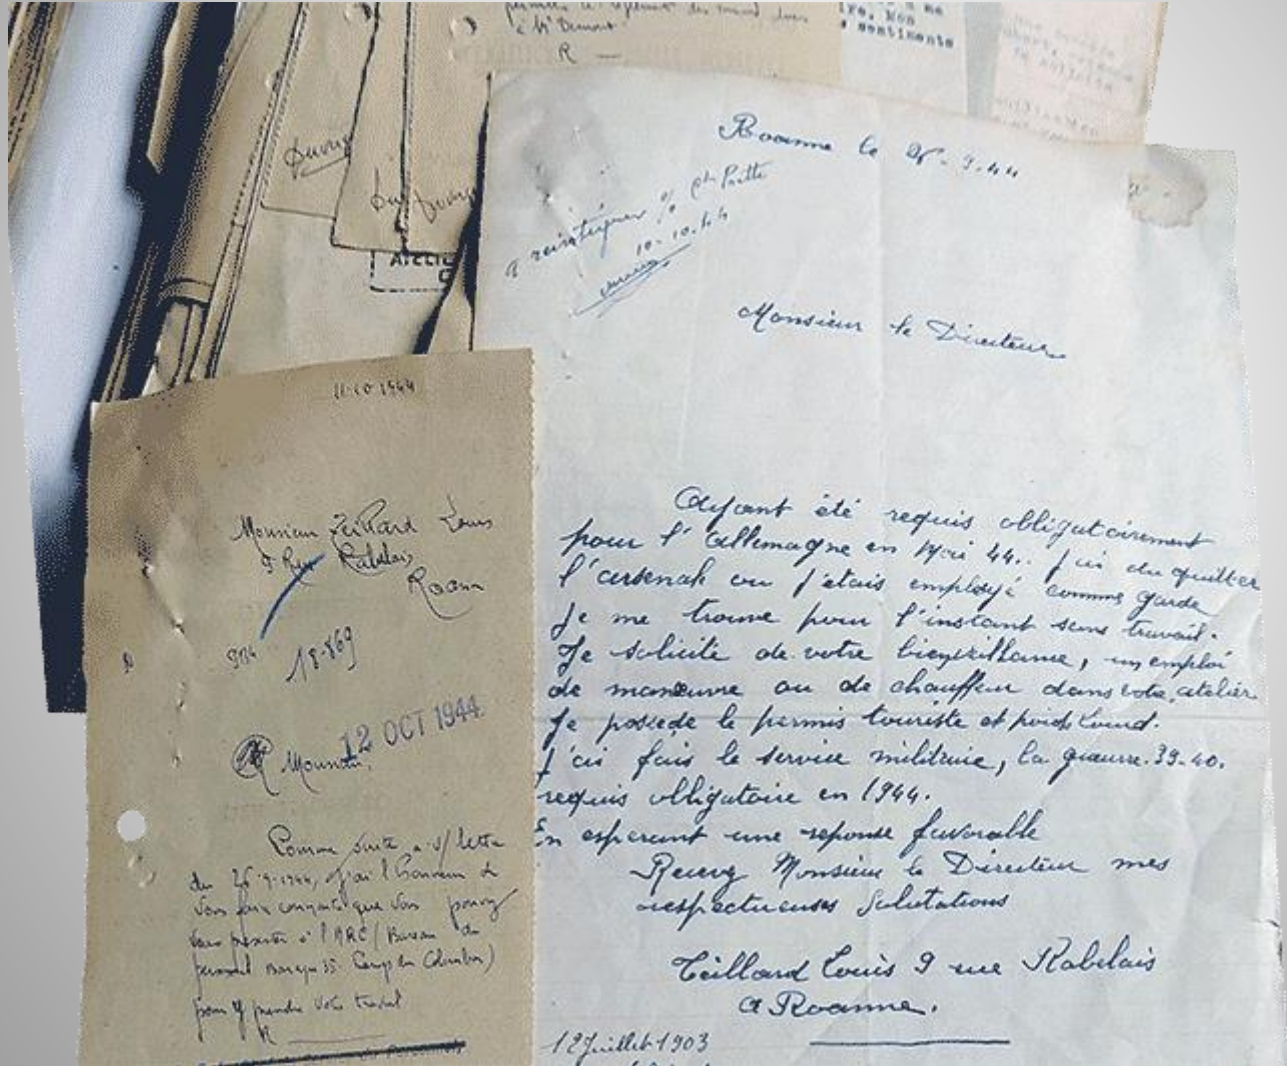 à Mr
R —
Mon
sentiments
ATELIE
Roanne le 26-9-44
a reintégrer
10-10-44
Monsieur le Directeur
Ayant été requis obligatoirement
pour l'Allemagne en Mai 44.. J'ai du quitter
l'arsenal ou j'étais employé comme garde
Je me trouve pour l'instant sans travail.
Je solicite de votre bienveillance, un emploi
de manœuvre ou de chauffeur dans votre atelier
Je possede le permis touriste et poids Lourd.
J'ai fais le service militaire, la guerre.39-40.
requis obligatoire en 1944.
En esperant une reponse favorable
Recevez Monsieur le Directeur mes
respectueuses Salutations
Teillard Louis 9 rue Rabelais
a Roanne.
12 Juillet 1903
11-10-1944
Monsieur Teillard Louis
9 Rue Rabelais
Roanne
18.869
12 OCT 1944
Monsieur,
Comme suite a v/ lettre
du 26-9-1944, j'ai l'honneur de
vous faire connaître que vous pouvez
vous présenter à l'ARC (Bureau du
personnel Baraque 35
pour y prendre votre travail
R